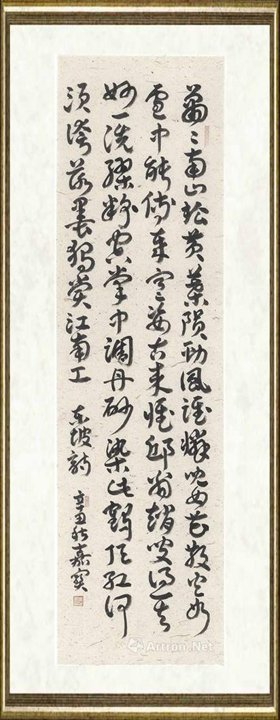 蕭〻南山松黄葉隕勁風誰憐兒女花散火冰
雪中能傳歲寒姿古来惟邱翁趙叟得其
妙一洗膠粉空掌中調丹砂染此鶴頂紅何
須誇落墨獨賞江南工 東坡詩 辛丑秋嘉實
Artron.Net